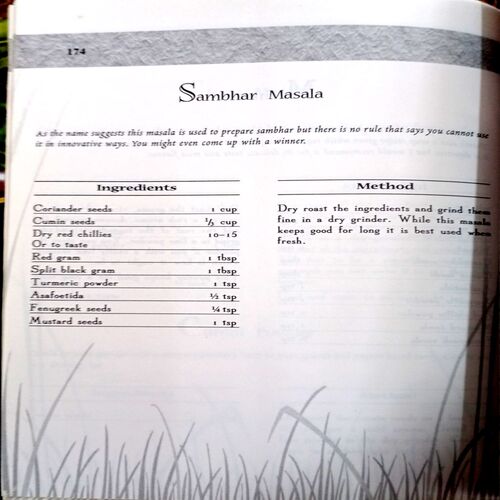 174
Sambhar Masala
As the name suggests this masala is used to prepare sambhar but there is no rule that says you cannot use
it in innovative ways. You might even come up with a winner.
Ingredients
Coriander seeds 1 cup
Cumin seeds ⅓ cup
Dry red chillies 10-15
Or to taste
Red gram 1 tbsp
Split black gram 1 tbsp
Turmeric powder 1 tsp
Asafoetida ½ tsp
Fenugreek seeds ¼ tsp
Mustard seeds 1 tsp
Method
Dry roast the ingredients and grind them
fine in a dry grinder. While this masala
keeps good for long it is best used when
fresh.